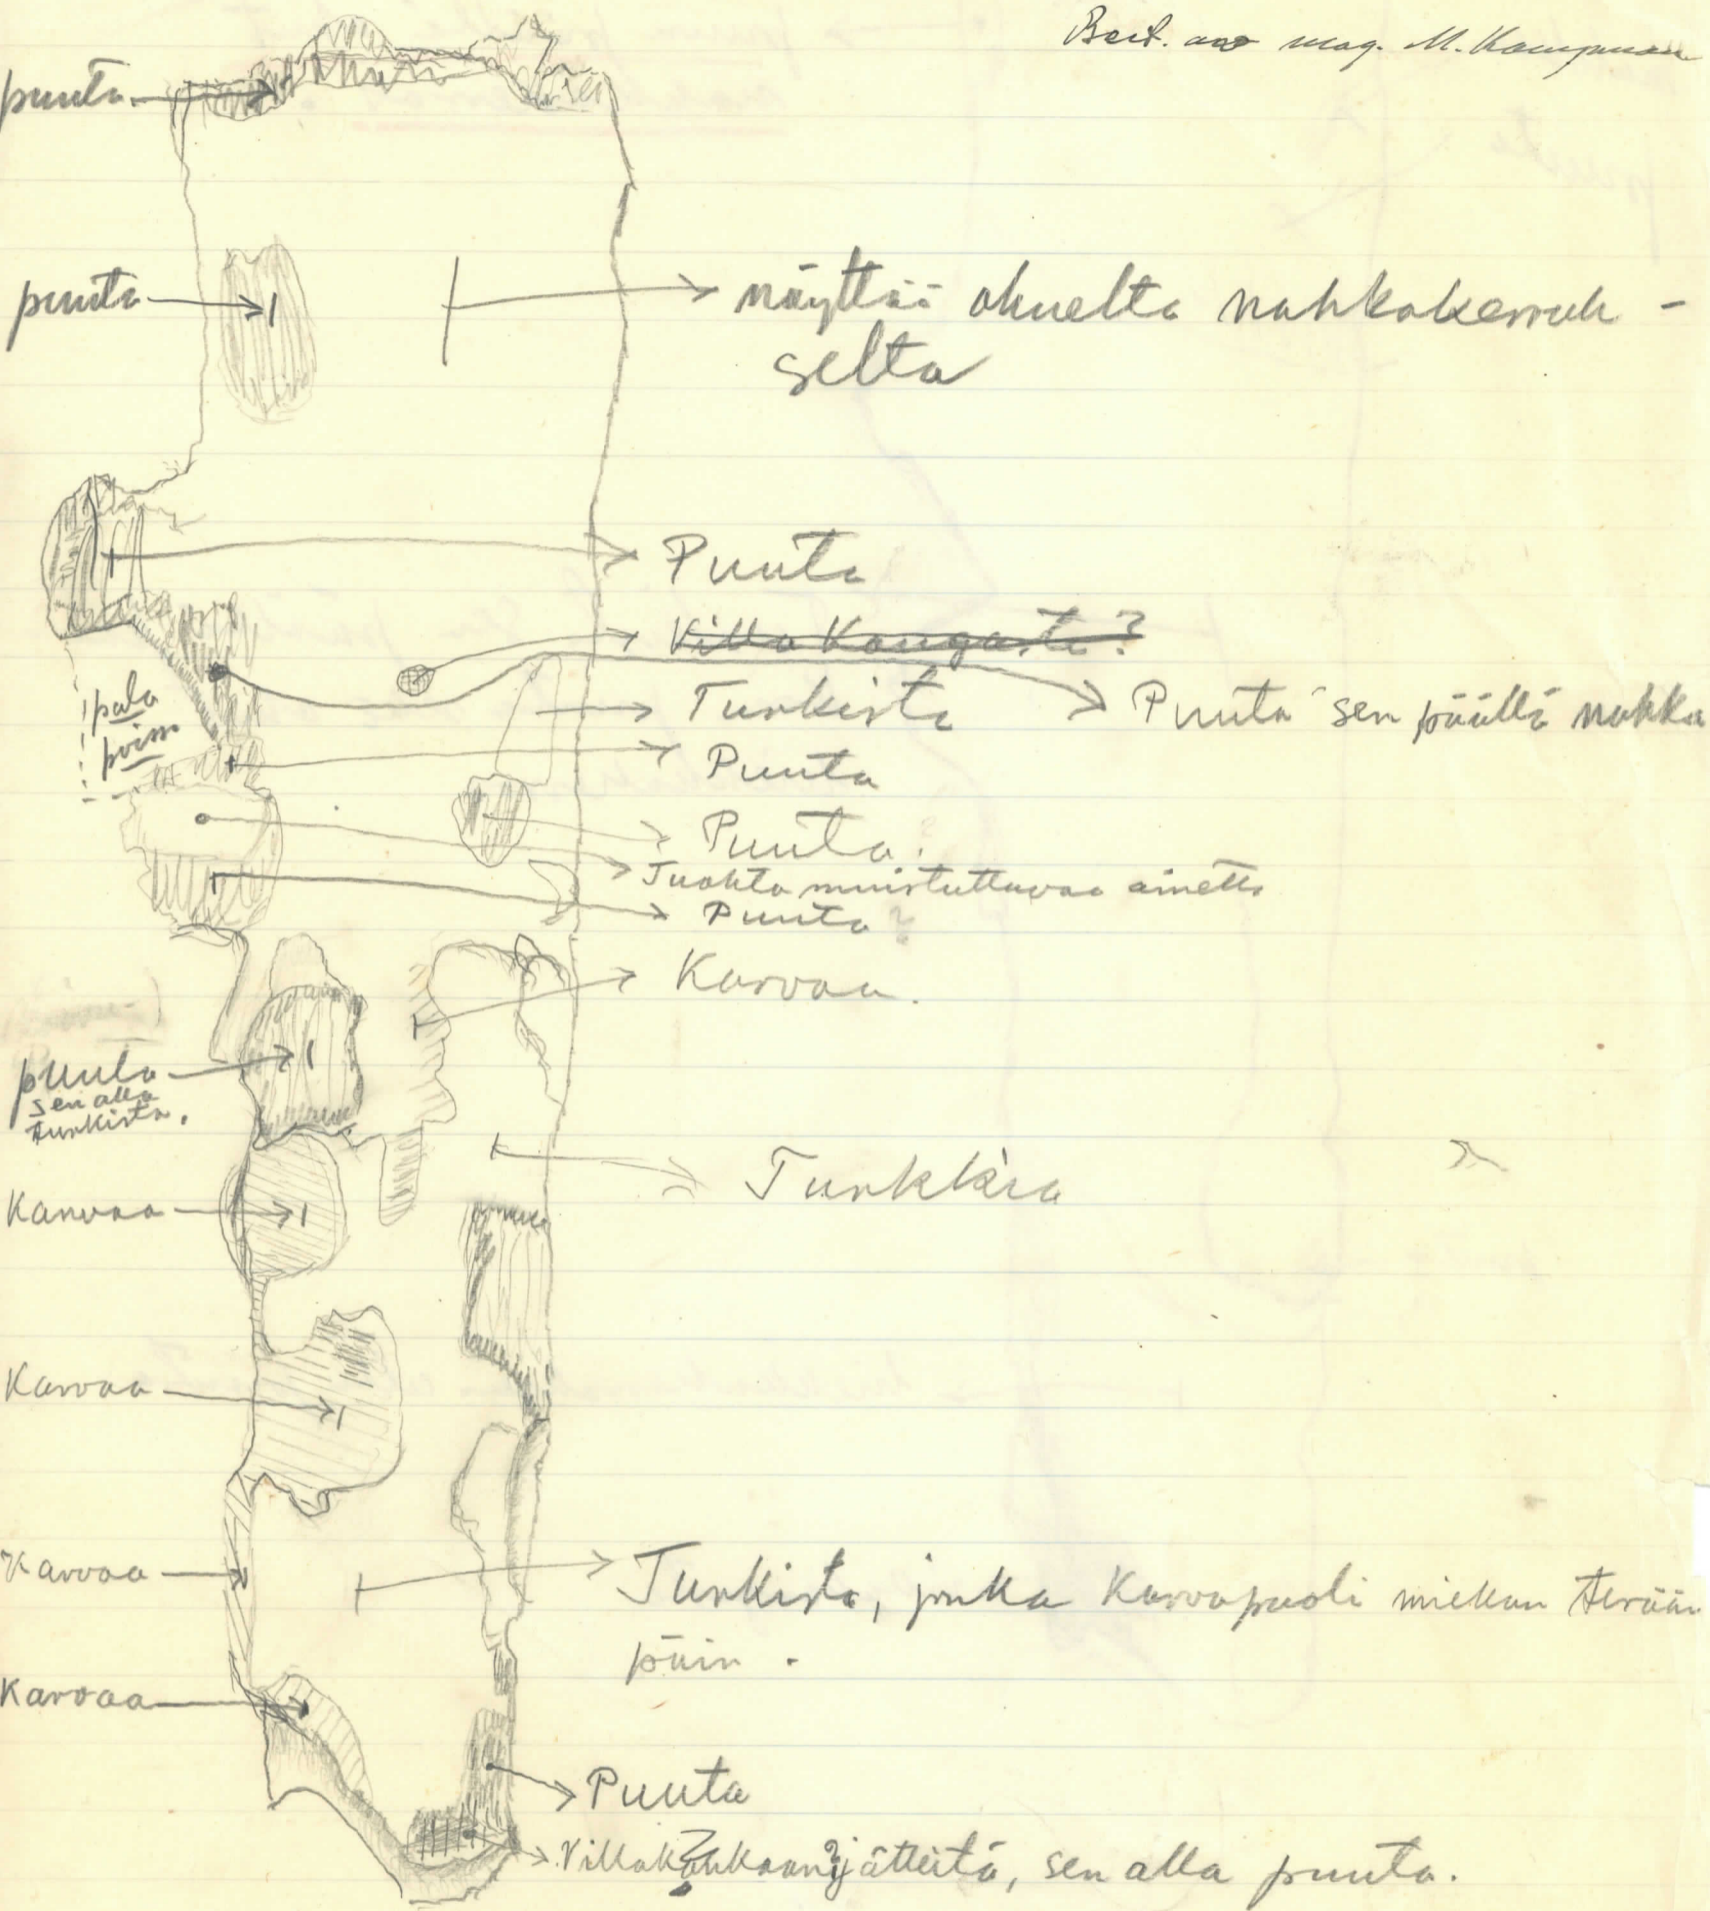 mag. M.
puuta
puuta
näyttää ohuelta nahkakerrok-
selta
Puuta
Villa Kangasta?
Turkista
Puuta sen päällä nahka
pala
poissa
Puuta
Puuta.
Tuohta muistuttavaa ainetta
Puuta?
Karvaa.
puuta
sen alla
turkista.
Turkkia
Karvaa
Karvaa
Karvaa
Turkista, jonka Karvapuoli miekan terään
päin.
Karvaa
Puuta
Villak? jätteitä, sen alla puuta.